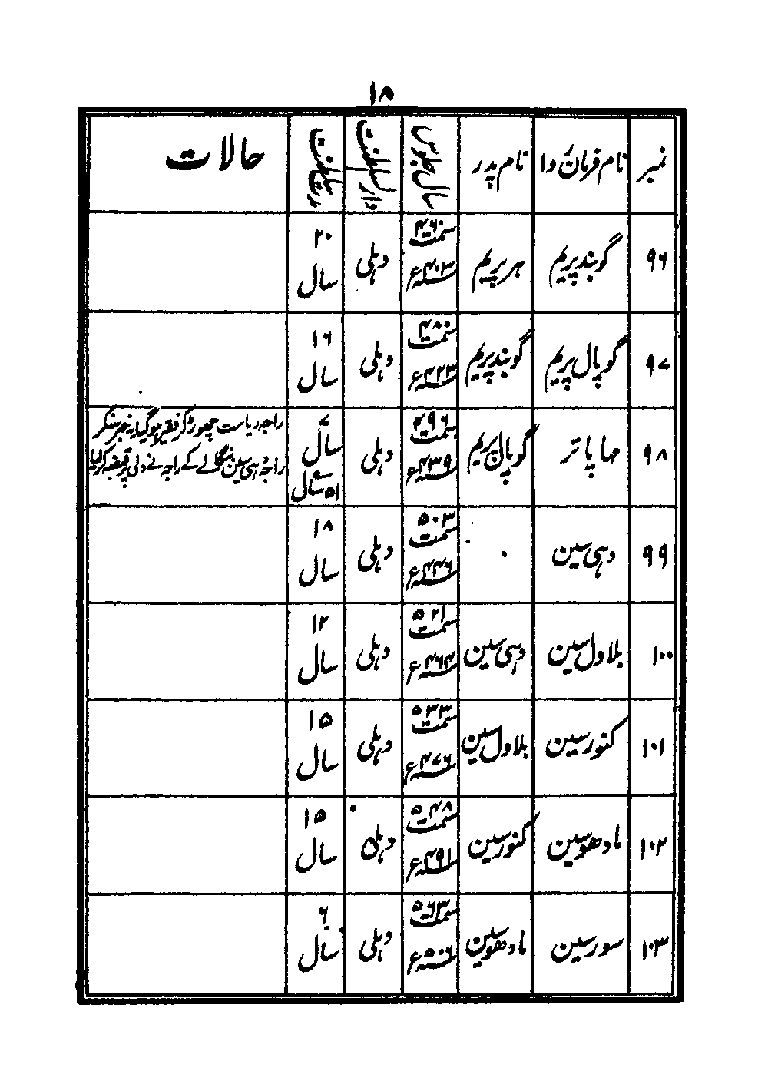 ۱۸
نمبر نام فرمان روا نام پدر سال جلوس دارسلطنت مدت سلطنت حالات
۹۶ گوبند پریم ہر پریم سمت ۴۶۰ سنہ ۴۰۳ء دہلی ۲۰ سال
۹۷ گوپال پریم گوبند پریم سمت ۴۸۰ سنہ ۴۲۳ء دہلی ۱۶ سال
۹۸ مہا پاتر گوپال پریم سمت ۴۹۶ سنہ ۴۳۹ء دہلی ۷ سال ۵۱ سال راجہ ریاست چھوڑ کر فقیر ہوگیا یہ خبر سنکر
راجہ دہی سین بنگالے کے راجہ نے دلی پر قبضہ کرلیا
۹۹ دہی سین سمت ۵۰۳ سنہ ۴۴۶ء دہلی ۱۸ سال
۱۰۰ بلاول سین دہی سین سمت ۵۲۱ سنہ ۴۶۴ء دہلی ۱۲ سال
۱۰۱ کنور سین بلاول سین سمت ۵۳۳ سنہ ۴۷۶ء دہلی ۱۵ سال
۱۰۲ مادھو سین کنور سین سمت ۵۴۸ سنہ ۴۹۱ء دہلی ۱۵ سال
۱۰۳ سور سین مادھو سین سمت ۵۶۳ سنہ ۵۰۶ء دہلی ۶ سال